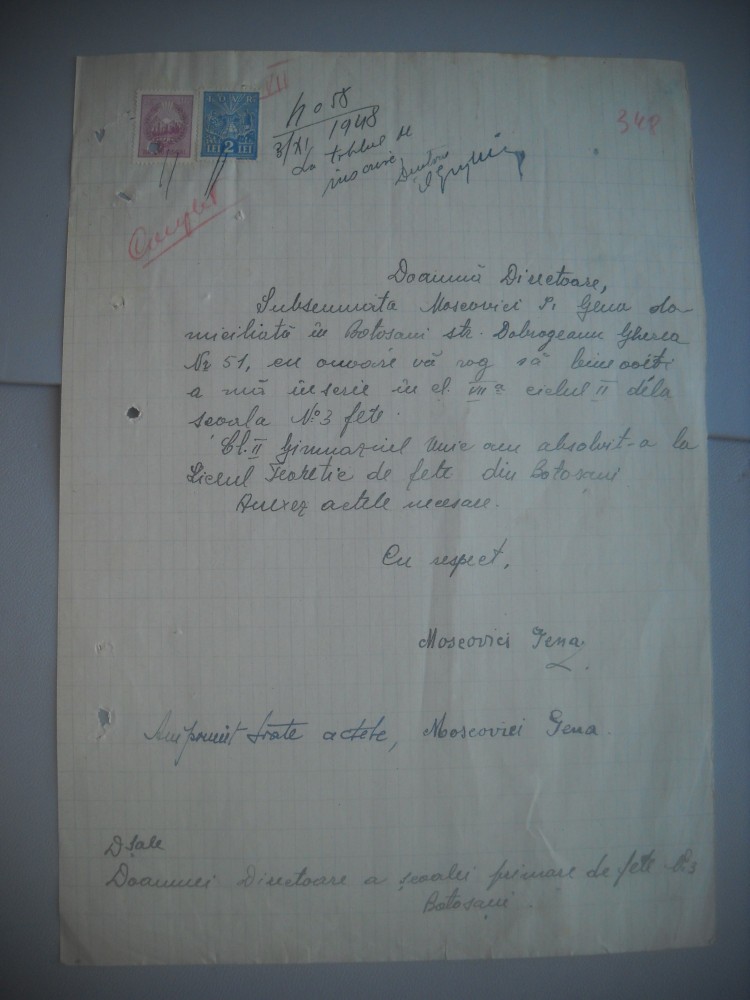 VII
No 58
3/XI 1948
348
La tablul de
înscrieri
Directoare
IOVR
LEI 2 LEI
Doamnă Directoare,
Subsemnata Moscovici P. Gena do-
miciliată în Botoșani str. Dobrogeanu Gherea
Nr 51, cu onoare vă rog să bine voiți
a mă înscrie în cl. VII a ciclul II dela
școala No 3 fete.
Cl. II Gimnaziul Unic am absolvit-o la
Liceul Teoretic de fete din Botoșani
Anexez actele necesare.
Cu respect,
Moscovici Gena
Am primit toate actele, Moscovici Gena.
D-sale
Doamnei Directoare a școalei primare de fete Nr 3
Botoșani.